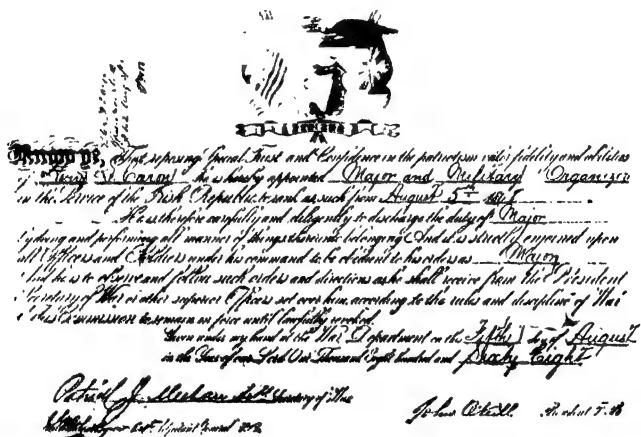 Know ye, That, reposing Special Trust and Confidence in the patriotism valor fidelity and abilities
of Henri Le Caron he is hereby appointed Major and Military Organizer
in the service of the Irish Republic to rank as such from August 5th 1868
He is therefore carefully and diligently to discharge the duty of Major
by doing and performing all manner of things thereunto belonging. And it is strictly enjoined upon
all Officers and Soldiers under his command to be obedient to his orders as Major
And he is to observe and follow such orders and directions as he shall receive from the President
Secretary of War or other superior Officers set over him, according to the rules and discipline of War
This Commission to remain in force until lawfully revoked.
Given under my hand at the War Department on the Fifth day of August
in the Year of our Lord One Thousand Eight hundred and Sixty Eight
Patrick J. Meehan Secretary of War
John O'Neill
Adjutant General